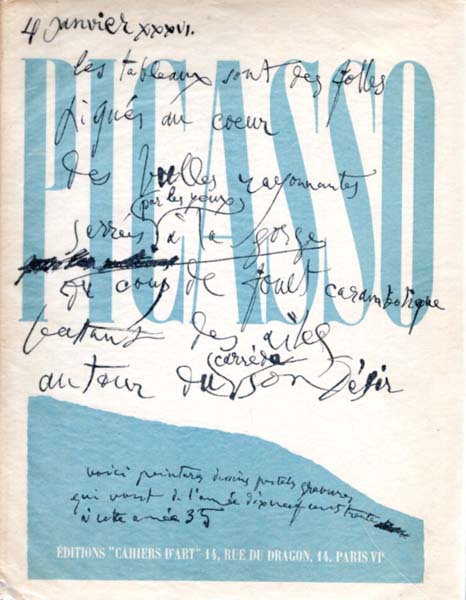 4 janvier XXXVI.
PICASSO
les tableaux sont des folles
piqués au coeur
des bulles rayonnantes
(par les yeux)
serrés à la gorge
du coup de fouet
battant des ailes
carré de
autour du son désir
voici peintures dessins pastels gravures
qui vont de l'année dixneuf cent trente
à cette année 35
ÉDITIONS "CAHIERS D'ART" 14, RUE DU DRAGON, 14, PARIS VIᵉ